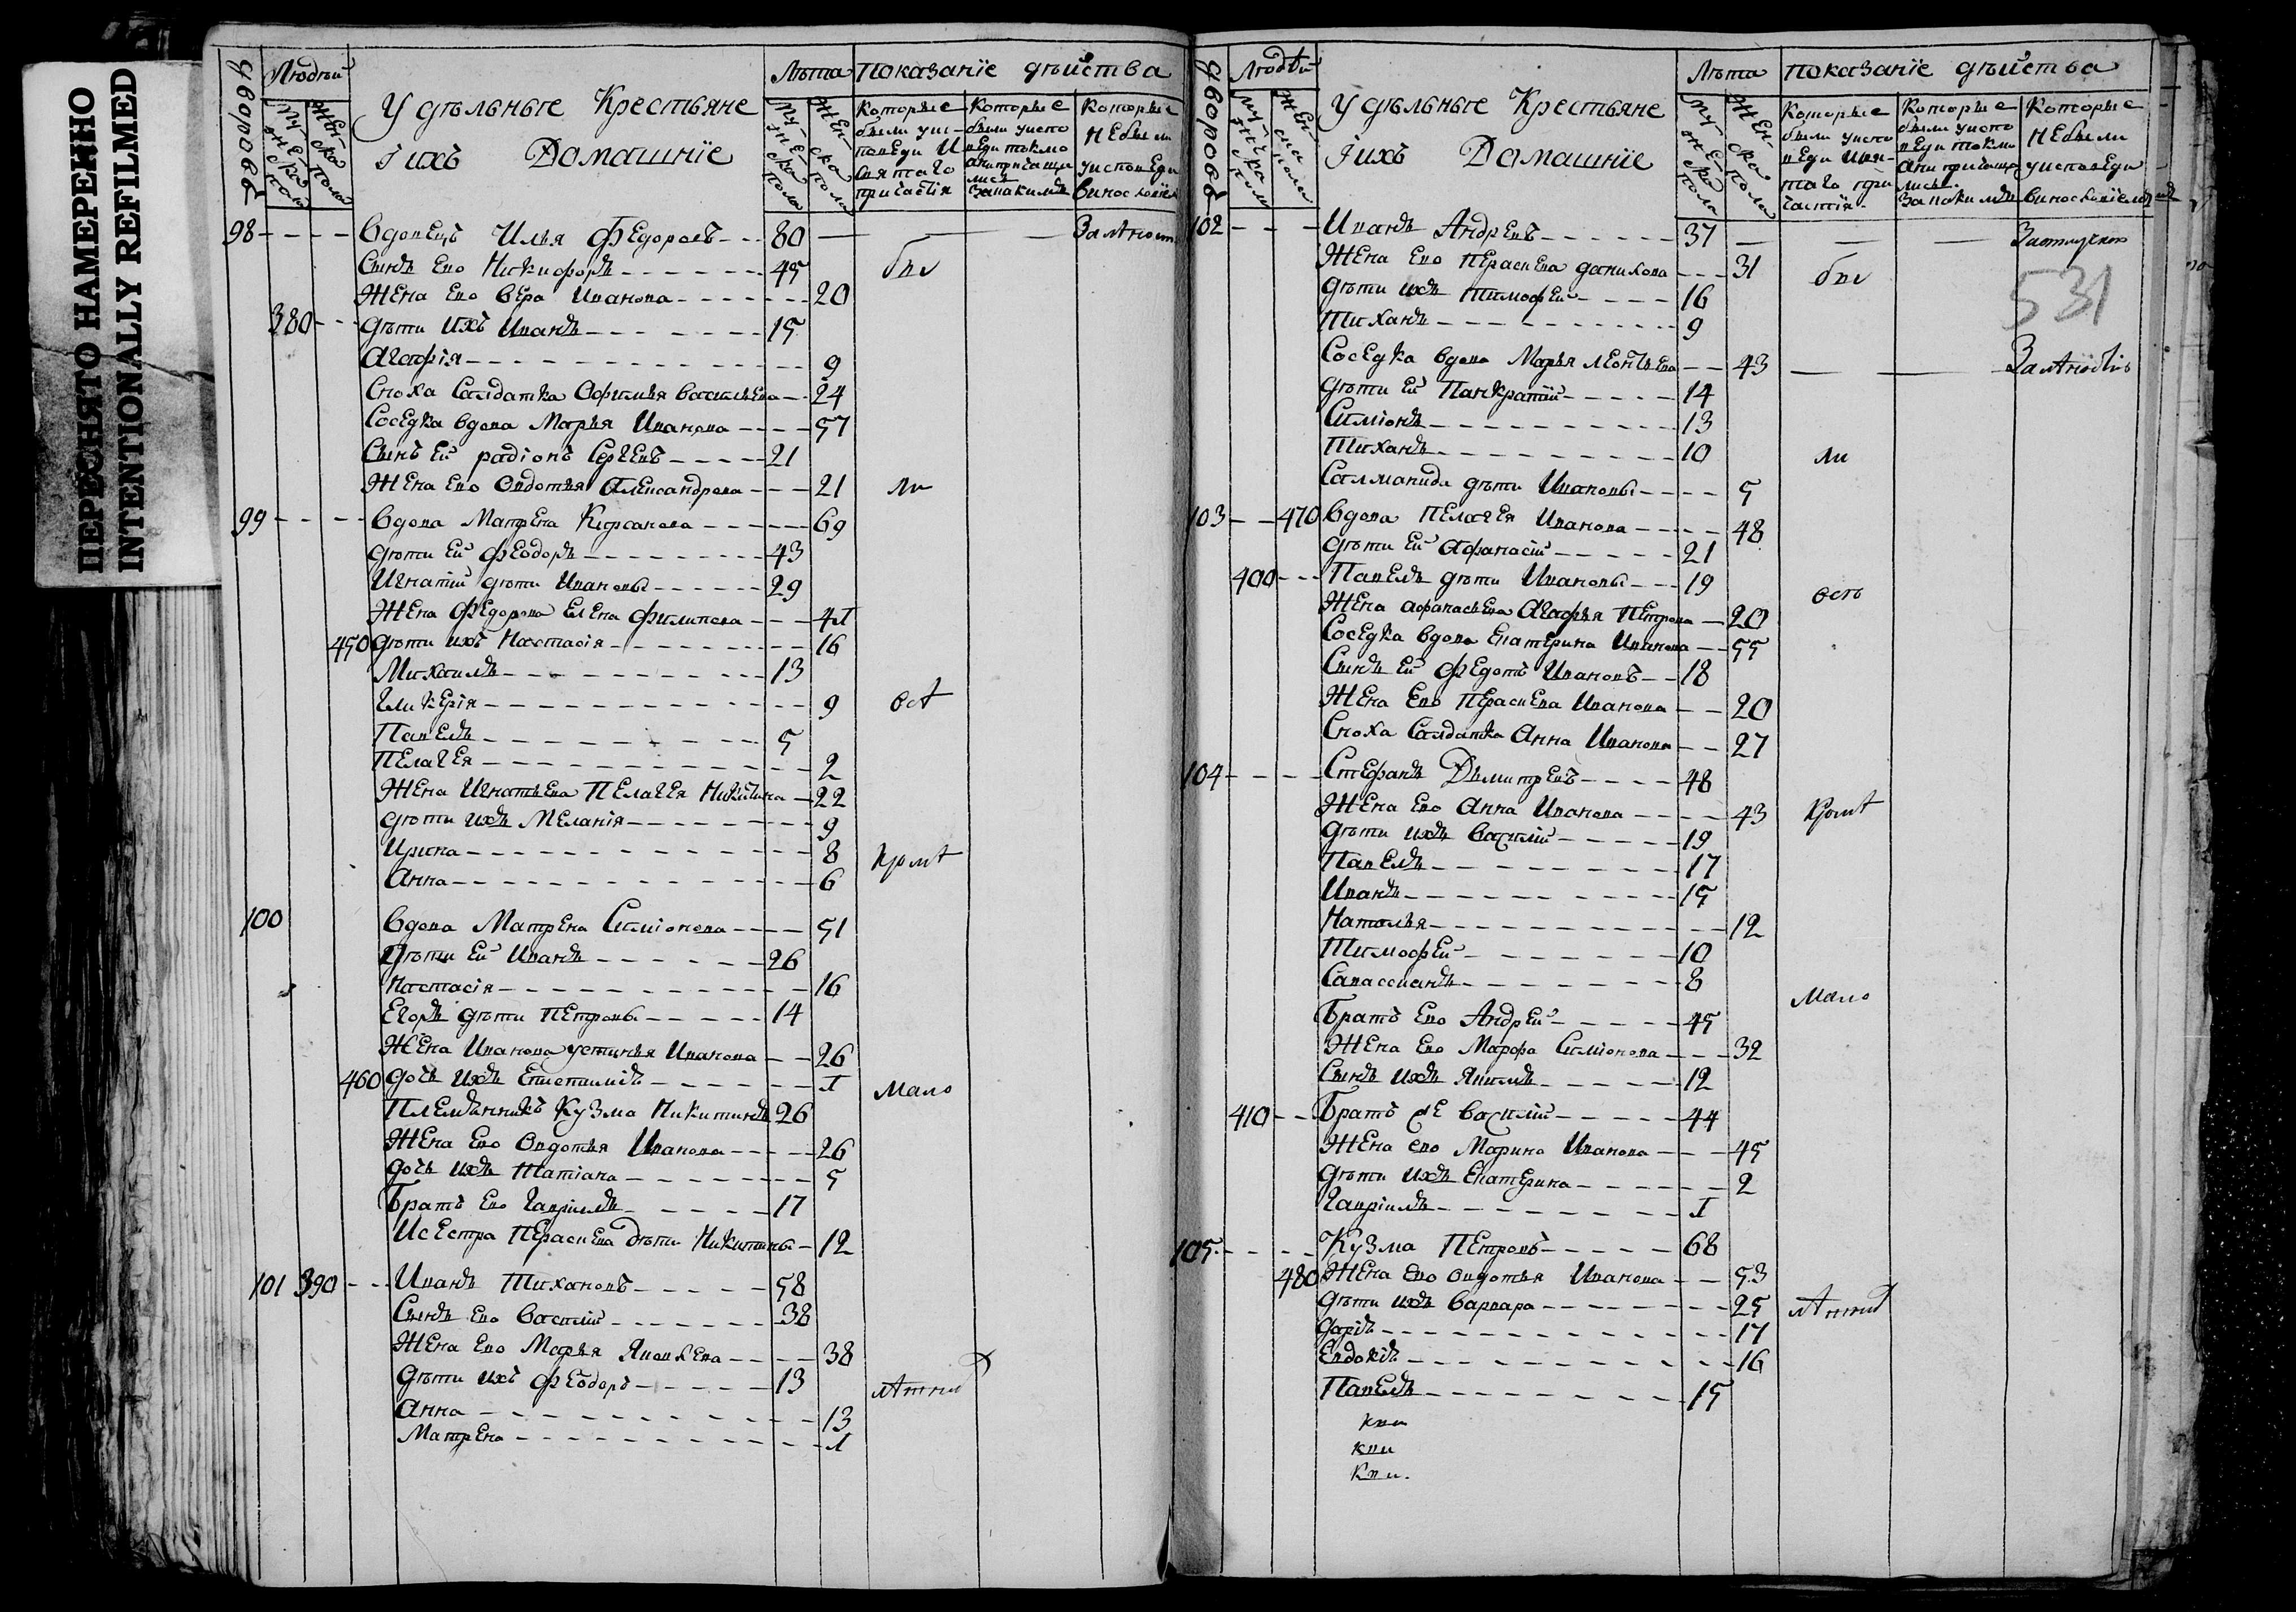 ПЕРЕСНЯТО НАМЕРЕННО
INTENTIONALLY REFILMED
дворовъ
Людѣй
Мужеска пола
Женска пола
Удѣльные Крестьяне
Iихъ Домашнїе
Лѣта
Мужеска пола
Женска пола
показанїе дѣйства
Которые были у исповеди и святаго причастїя
Которые были у исповеди токмо а не причащались
За какимъ
Которые не были у исповеди
98 Вдовецъ Илья Федоровъ 80
Сынъ Ево Никифоръ 45 бы
Жена Ево Вера Иванова 20
380 дѣти ихъ Иванъ 15
Агафїя 9
Сноха Салдатка Офимья Васильева 24
Соседка вдова Марья Иванова 57
Сынъ Ей радїонъ Сергеевъ 21
Жена Ево Овдотья Александрова 21 ли
99 Вдова Матрена Кирсанова 69
дѣти Ей Феодоръ 43
Игнатїй дѣти Ивановы 29
Жена Федорова Елена Филипова 41
450 дѣти ихъ Настасїя 16
Михаилъ 13
Гликерїя 9
Павелъ 5
Пелагея 2
Жена Игнатьева Пелагея Никитина 22
дѣти ихъ Меланїя 9
Ирина 8 кромѣ
Анна 6
100 Вдова Матрена Симїонова 51
Дѣти Ей Иванъ 26
Настасїя 16
Егоръ дѣти Петровы 14
Жена Иванова устинья Иванова 26
460 дочь ихъ 1 мало
Племянникъ Кузма Никитинъ 26
Жена Ево Овдотья Иванова 26
дочь ихъ Татїана 5
Братъ Ево Гаврїилъ 17
И сестра Пераскева дѣти Никитины 12
101 390 Иванъ Тихановъ 58
Сынъ Ево Василїй 38
Жена Ево Марья Яковлева 38
Дѣти ихъ Феодоръ 13 лѣтнихъ
Анна 13
Матрена 1
дворовъ
Людѣй
Мужеска пола
Женска пола
Удѣльные Крестьяне
Iихъ Домашнїе
Лѣта
Мужеска пола
Женска пола
показанїе дѣйства
Которые были у исповеди и святаго причастїя
Которые были у исповеди токмо а не причащались
За какимъ
Которые не были у исповеди
102 Иванъ Андреевъ 37
Жена Ево Пераскева данилова 31 бы
дѣти ихъ Тимофей 16
531
Тиханъ 9
Соседка вдова Марья Леонтьева 43
дѣти Ей Панкратїй 14
Симїонъ 13
Тиханъ 10 ли
Саламанида дѣти Ивановы 5
103 470 Вдова Пелагея Иванова 48
дѣти Ей Афанасїй 21
400 Павелъ дѣти Ивановы 19
Жена афанасьева Агафья Петрова 20
Соседка вдова Екатерина Иванова 55
Сынъ Ей Федотъ Ивановъ 18
Жена Ево Пераскева Иванова 20
Сноха Салдатка Анна Иванова 27
104 Стефанъ Дмитреевъ 48
Жена Ево Анна Иванова 43 кромѣ
дѣти ихъ Василїй 19
Павелъ 17
Иванъ 15
Наталья 12
Тимофей 10
8
мало
Братъ Ево Андрей 45
Жена Ево Марфа Симїонова 32
Сынъ ихъ Якимъ 12
410 Братъ Василїй 44
Жена Ево Марина Иванова 45
Дѣти ихъ Екатерина 2
Гаврїилъ 1
105 Кузма Петровъ 68
480 Жена Ево Овдотья Иванова 53
дѣти ихъ Варвара 25 лѣтнихъ
дарїя 17
Евдокїя 16
Павелъ 15